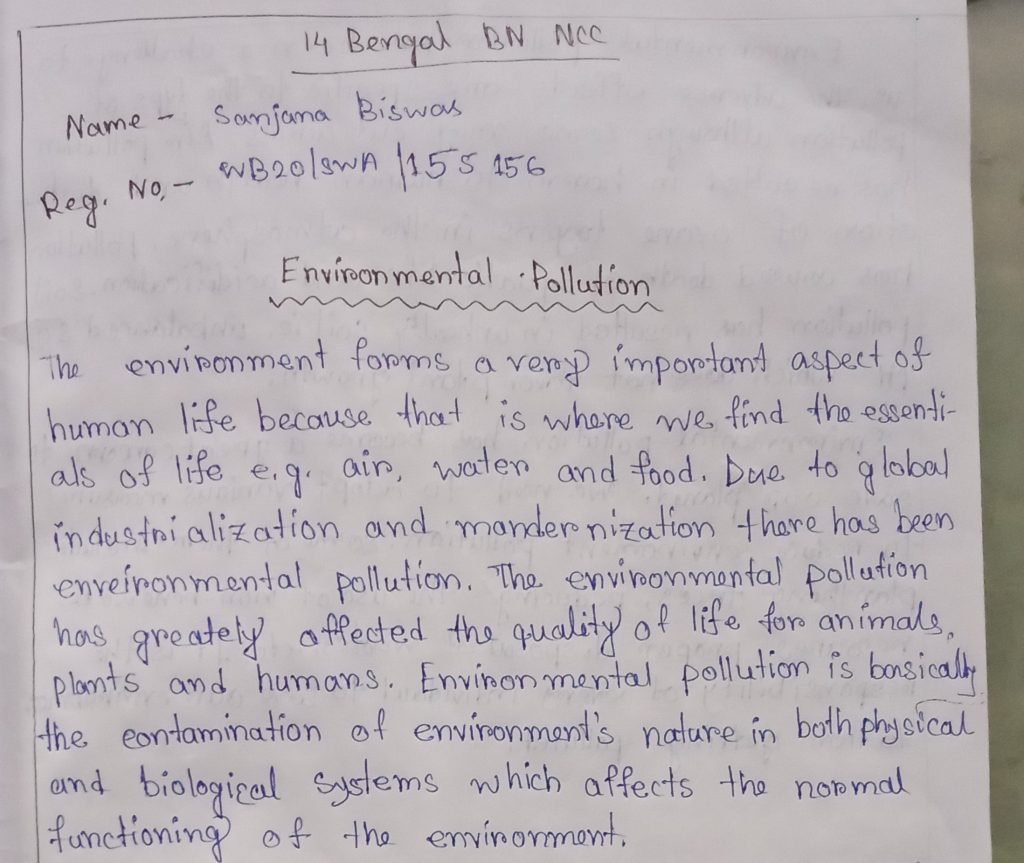 14 Bengal BN NCC
Name - Sanjana Biswas
Reg. No, - WB20/SWA/155156
Environmental Pollution
The environment forms a very important aspect of
human life because that is where we find the essenti-
als of life e.g. air, water and food. Due to global
industrialization and mandernization there has been
enveironmental pollution. The environmental pollution
has greately affected the quality of life for animals,
plants and humans. Environmental pollution is basically
the contamination of environment's nature in both physical
and biological systems which affects the normal
functioning of the environment.